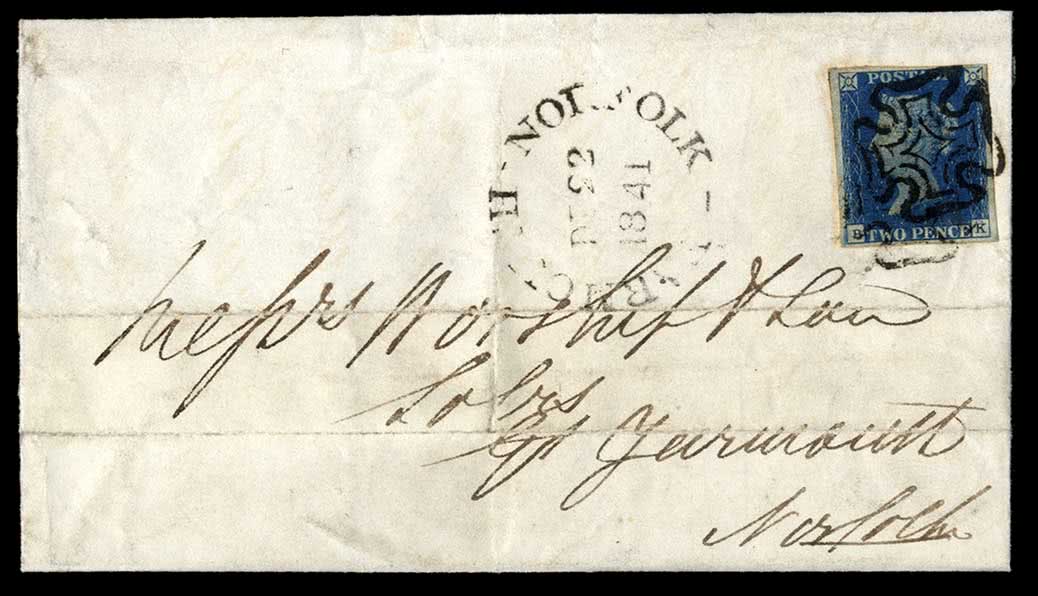 POSTAGE
B TWO PENCE K
NORFOLK
DE 22
1841
Messrs Worship & Son
Solrs
Gt Yarmouth
Norfolk